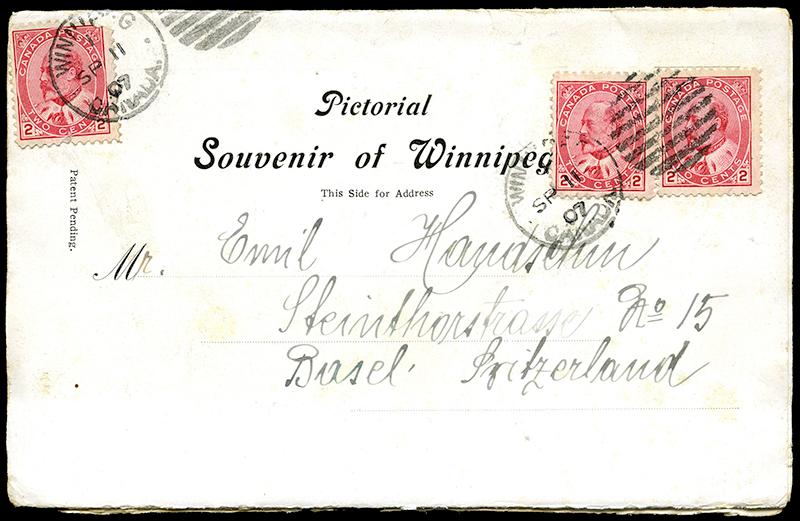 CANADA POSTAGE
2 TWO CENTS 2
WINNIPEG
SP 11
07
CANADA.
Pictorial
Souvenir of Winnipeg
This Side for Address
Patent Pending.
CANADA POSTAGE
2 TWO CENTS 2
CANADA POSTAGE
2 TWO CENTS 2
WINNIPEG
SP 11
07
CANADA
Mr. Emil Handschin
Steinthorstrasse No 15
Basel. Switzerland